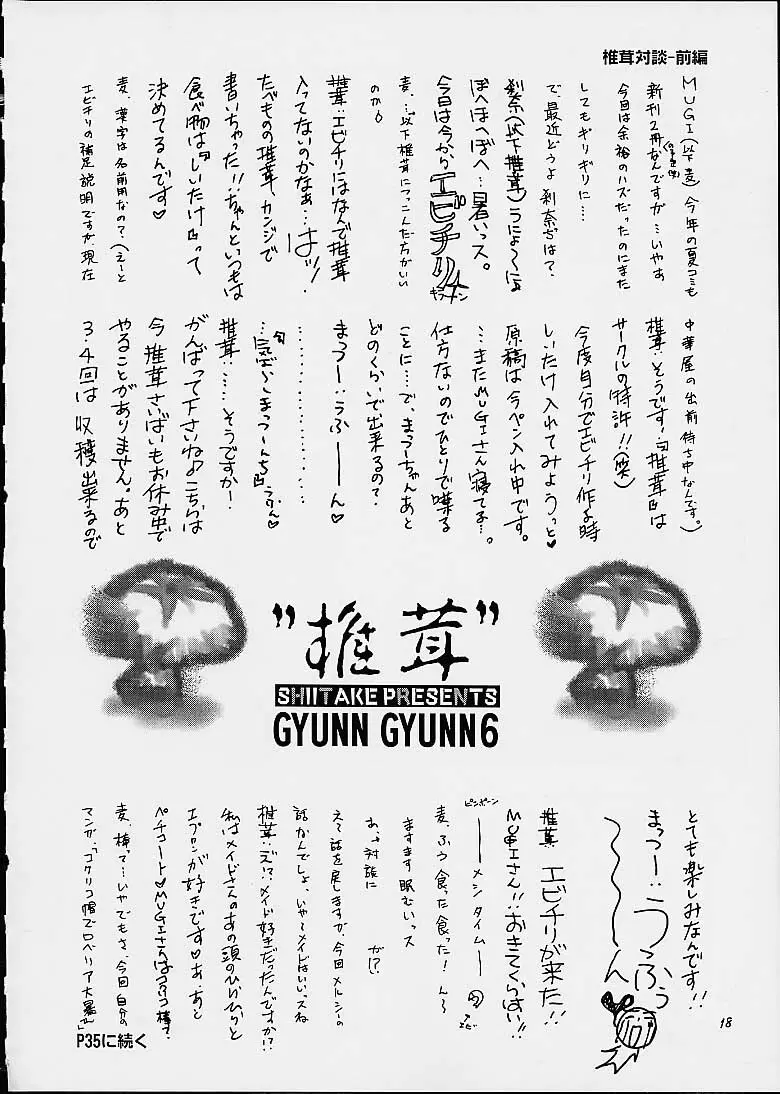 椎茸対談-前編
MUGI(以下麦) 今年の夏コミも
新刊2冊なんですが…いやぁ
今回は余裕のハズだったのにまた
してもギリギリに…
で、最近どうよ刹奈ちは?
刹奈(以下椎茸)うにょ〜にょ
ぼへほへぼへ…暑いっス。
今日は今からエビチリ
麦:…以下椎茸につっこんだ方がいい
のか?
椎茸:エビチリにはなんで椎茸
入ってないのかなぁ…はッ!
たべものの椎茸、カンジで
書いちゃった!!…ちゃんといつもは
食べ物は『しいたけ』って
決めてるんです♡
麦:漢字は名前用なの?(えーと
エビチリの補足説明ですが、現在
中華屋の出前待ち中なんです。)
椎茸:そうです!『椎茸』は
サークルの特許!!(笑)
今度自分でエビチリ作る時
しいたけ入れてみようっと♡
原稿は今ペン入れ中です。
…またMUGIさん寝てる…。
仕方ないのでひとりで喋る
ことに…で、まっつーちゃんあと
どのくらいで出来るの?
まっつー:うふーーん♡
…………………
椎茸:……そうですか!
がんばって下さいね♪こちらは
今椎茸さいばいもお休み中で
やることがありません。あと
3・4回は収穫出来るので
"椎茸"
SHIITAKE PRESENTS
GYUNN GYUNN 6
とても楽しみなんです!!
まっつー:うっふぅ
〜〜〜〜ん
椎茸:エビチリが来た!!
MUGIさん!!おきてくらはい!!
ピンポーン
——メシタイム——
麦:ふう食った食った!ん〜
ますます眠むいっス
あ、対談に
が!?
えて話を戻しますが、今回メルシーの
話かんでしょ、いや〜メイドはいいっスね
椎茸:えいっ?メイド好きだったんですか!?
私はメイドさんのあの頭のひらひらと
エプロンが好きです♡あ、あと
ペチコート♡MUGIさんはコクリコ棒?
麦:棒って…いやでもさ、今回自分の
マンガ、「コクリコ帽でロベリア大暴れ」
P35に続く
18